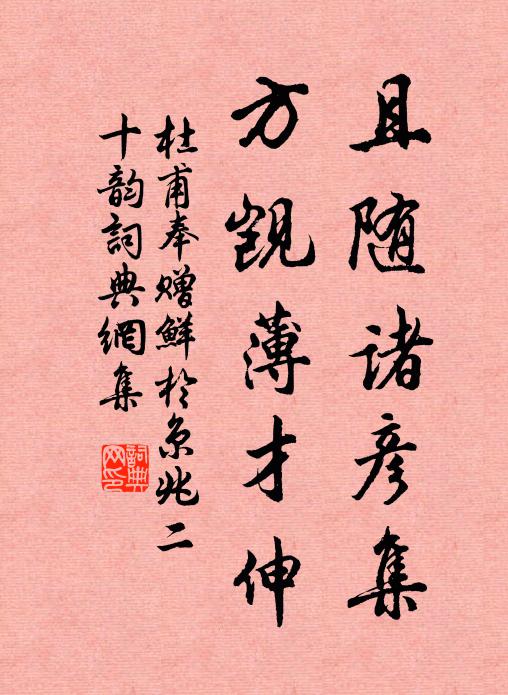 且随诸彦集
方觊薄才伸
杜甫奉赠鲜於京兆二
十韵詞典網集
詞典
网印